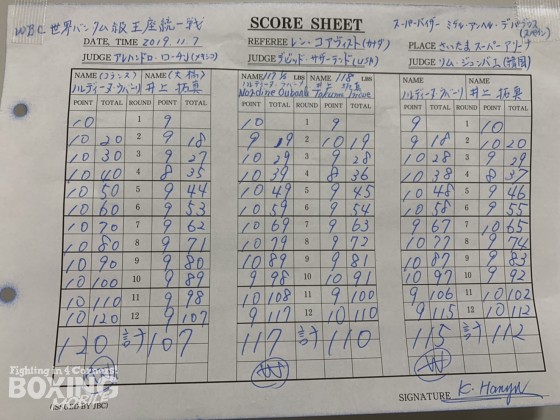 WBC 世界バンタム級王座統一戦
SCORE SHEET
スーパーバイザー ミゲル・アンヘル・デ・パブロス
(スペイン)
DATE, TIME 2019.11.7
REFEREE レン・コアヴィスト(カナダ)
PLACE さいたまスーパーアリーナ
JUDGE アレハンドロ・ローチン(メキシコ)
JUDGE デビッド・サザーランド(USA)
JUDGE リム・ジュンバエ(韓国)
NAME (フランス) NAME (大橋)
ノルディーヌ・ウバーリ 井上 拓真
NAME 117 ½ LBS NAME 118 LBS
ノルディーヌ・ウバーリ 井上 拓真
Nordine Oubaali Takuma Inoue
NAME NAME
ノルディーヌ・ウバーリ 井上 拓真
POINT TOTAL ROUND POINT TOTAL
10 1 9
10 20 2 9 18
10 30 3 9 27
10 40 4 8 35
10 50 5 9 44
10 60 6 9 53
10 70 7 9 62
10 80 8 9 71
10 90 9 9 80
10 100 10 9 89
10 110 11 9 98
10 120 12 9 107
120 計 107
POINT TOTAL ROUND POINT TOTAL
10 1 9
9 19 2 10 19
10 29 3 9 28
10 39 4 8 36
10 49 5 9 45
10 59 6 9 54
10 69 7 9 63
10 79 8 9 72
10 89 9 9 81
9 98 10 10 91
10 108 11 9 100
9 117 12 10 110
117 計 110
POINT TOTAL ROUND POINT TOTAL
9 1 10
9 18 2 10 20
10 28 3 9 29
10 38 4 8 37
10 48 5 9 46
10 58 6 9 55
9 67 7 10 65
10 77 8 9 74
10 87 9 9 83
10 97 10 9 92
9 106 11 10 102
9 115 12 10 112
115 計 112
W
W
W
Fighting in 4 Corners!
BOXING
MOBILE
(ISSUED BY JBC)
SIGNATURE